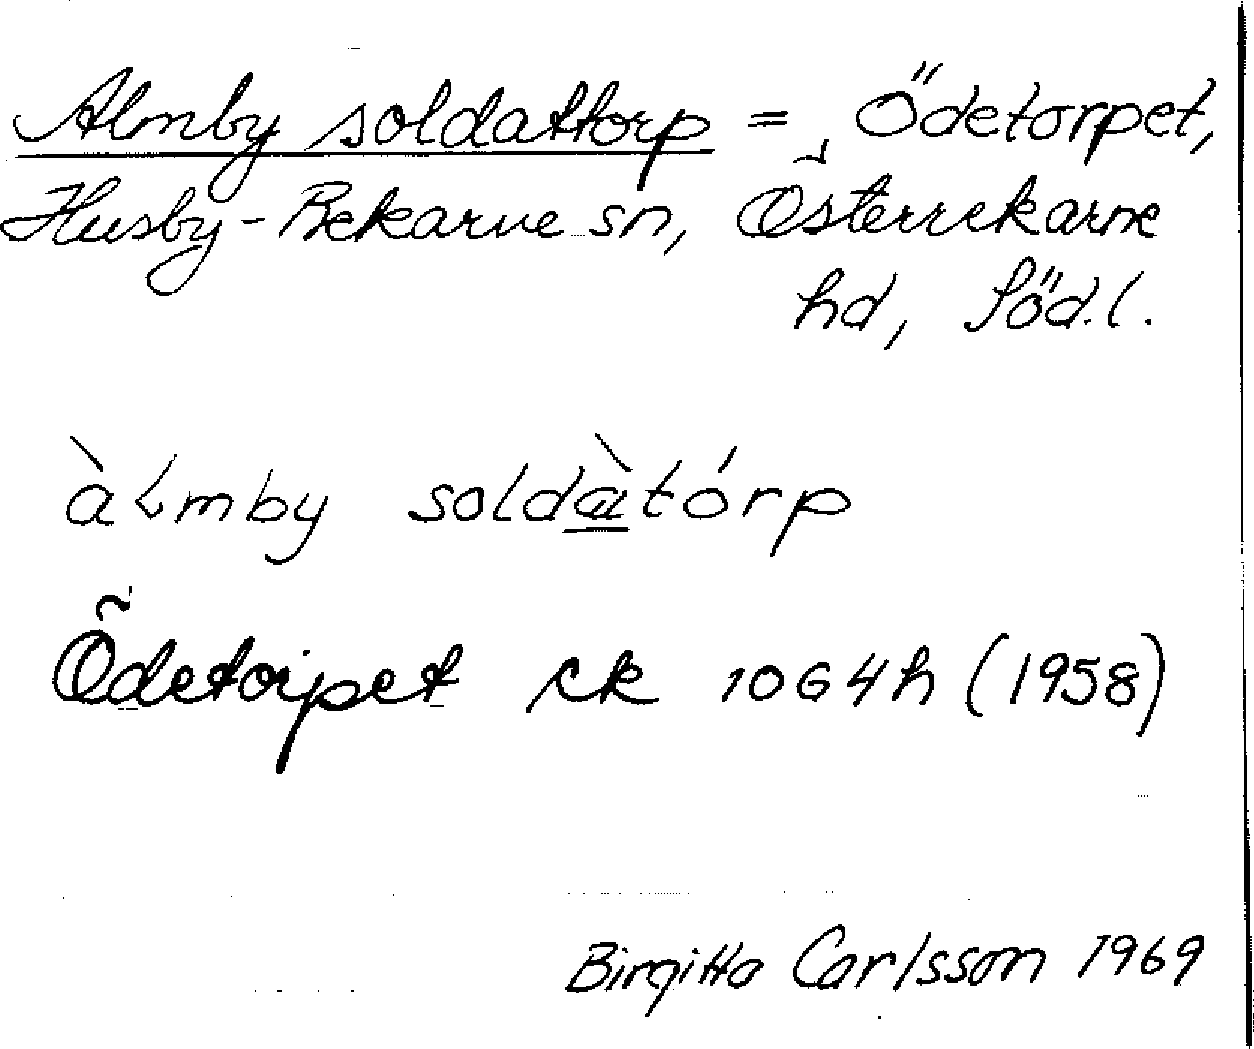 Almby soldattorp = Ödetorpet,
Husby-Rekarne sn, Österrekarne
hd, Söd.l.
àLmby soldàtórp
Ödetorpet ek 10G4h (1958)
Birgitta Carlsson 1969